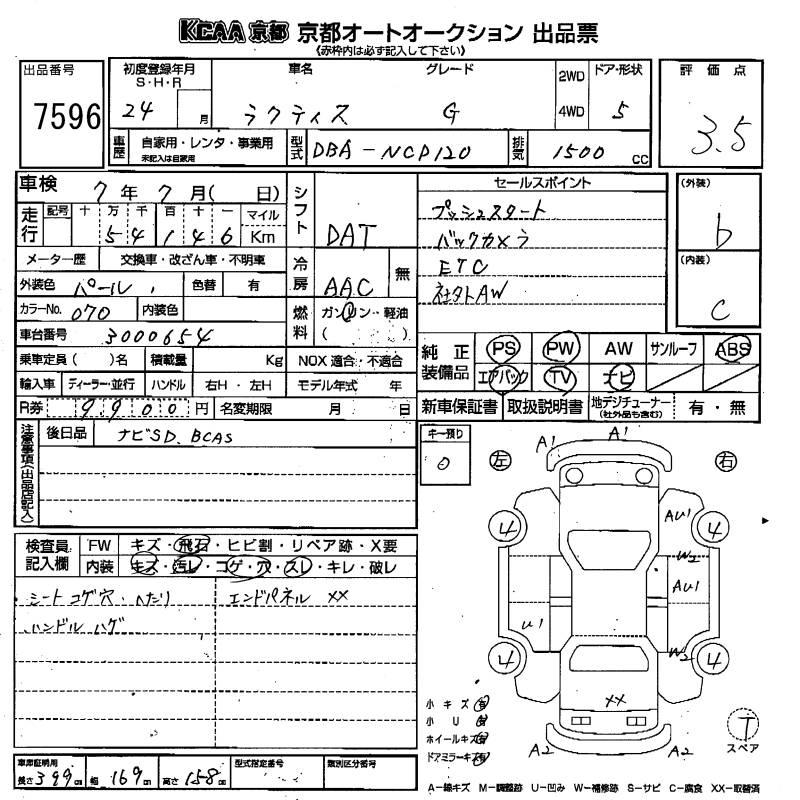 KCAA 京都 京都オートオークション 出品票
《赤枠内は必ず記入して下さい》
出品番号 7596
初度登録年月 S・H・R 24 月
車名 ラクティス
グレード G
2WD 4WD
ドア・形状 5
評価点 3.5
車歴 自家用・レンタ・事業用 未記入は自家用
型式 DBA-NCP120
排気 1500 CC
車検 7年7月( 日)
シフト DAT
走行 記号 十 万 千 百 十 一 マイル Km
54146
メーター歴 交換車・改ざん車・不明車
冷房 AAC 無
外装色 パール 色替 有
カラーNo. 070 内装色
燃料 ガソリン・軽油 ( )
車台番号 3000654
乗車定員( )名 積載量 Kg NOX 適合・不適合
輸入車 ディーラー・並行 ハンドル 右H・左H モデル年式 年
R券 9900円 名変期限 月 日
セールスポイント
プッシュスタート
バックカメラ
ETC
社外AW
(外装) b
(内装) C
純正装備品 PS PW AW サンルーフ ABS
エアバック TV ナビ
新車保証書 取扱説明書 地デジチューナー(社外品も含む) 有・無
注意事項(出品店記入)
後日品 ナビSD、BCAS
キー預り 0
検査員記入欄 FW キズ・飛石・ヒビ割・リペア跡・X要
内装 キズ・汚レ・コゲ・穴・スレ・キレ・破レ
シートコゲ穴・へたり
ハンドルハゲ
エンドパネル XX
左 右
A1 A1
4 4
AU1
W2
AU1
U1
W2
4 4
XX
A2 A2
小キズ 有
小U 有
ホイールキズ 有
ドアミラーキズ 有
T スペア
車庫証明用 長さ399cm 幅169cm 高さ158cm
型式指定番号
類別区分番号
A-線キズ M-調整跡 U-凹み W-補修跡 S-サビ C-腐食 XX-取替済